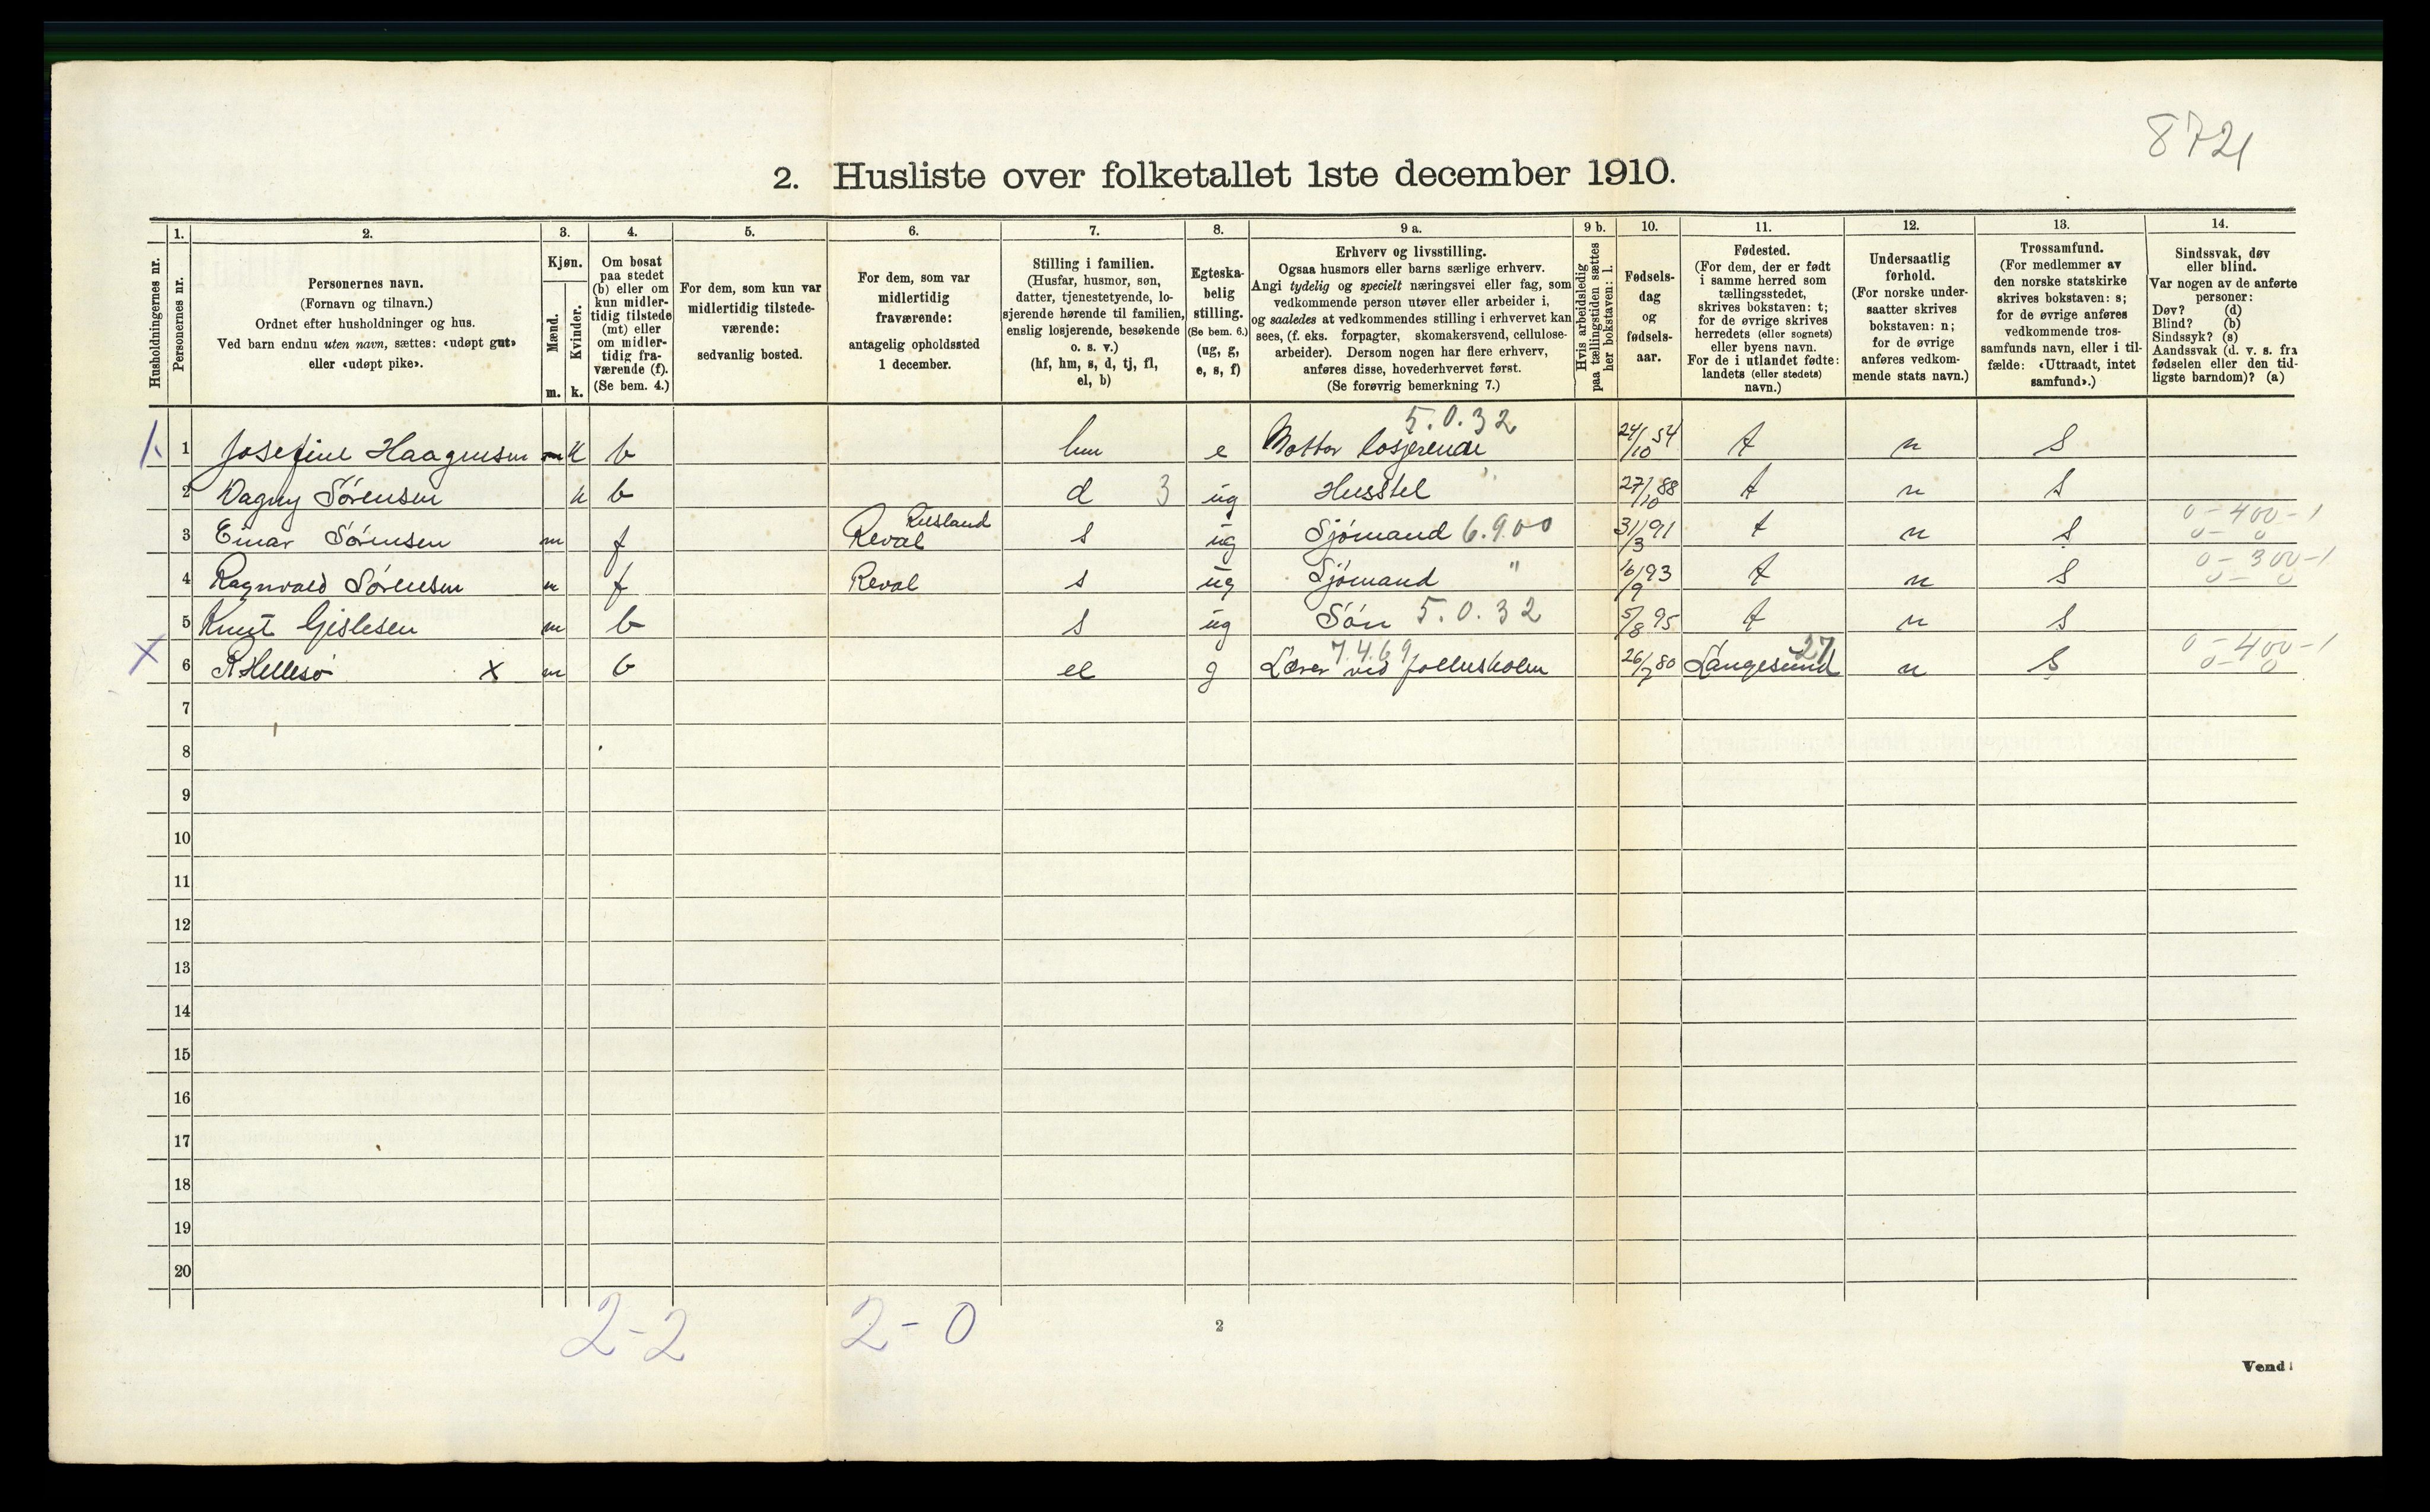 8721
2. Husliste over folketallet 1ste december 1910.
Husholdningernes nr.
1.
Personernes nr.
2.
Personernes navn.
(Fornavn og tilnavn.)
Ordnet efter husholdninger og hus.
Ved barn endnu uten navn, sættes: «udøpt gut»
eller «udøpt pike».
3.
Kjøn.
Mænd.
m.
Kvinder.
k.
4.
Om bosat
paa stedet
(b) eller om
kun midler-
tidig tilstede
(mt) eller
om midler-
tidig fra-
værende (f).
(Se bem. 4.)
5.
For dem, som kun var
midlertidig tilstede-
værende:
sedvanlig bosted.
6.
For dem, som var
midlertidig
fraværende:
antagelig opholdssted
1 december.
7.
Stilling i familien.
(Husfar, husmor, søn,
datter, tjenestetyende, lo-
sjerende hørende til familien,
enslig losjerende, besøkende
o. s. v.)
(hf, hm, s, d, tj, fl,
el, b)
8.
Egteska-
belig
stilling.
(Se bem. 6.)
(ug, g,
e, s, f)
9 a.
Erhverv og livsstilling.
Ogsaa husmors eller barns særlige erhverv.
Angi tydelig og specielt næringsvei eller fag, som
vedkommende person utøver eller arbeider i,
og saaledes at vedkommendes stilling i erhvervet kan
sees, (f. eks. forpagter, skomakersvend, cellulose-
arbeider). Dersom nogen har flere erhverv,
anføres disse, hovederhvervet først.
(Se forøvrig bemerkning 7.)
9 b.
Hvis arbeidsledig
paa tællingstiden sættes
her bokstaven: l.
10.
Fødsels-
dag
og
fødsels-
aar.
11.
Fødested.
(For dem, der er født
i samme herred som
tællingsstedet,
skrives bokstaven: t;
for de øvrige skrives
herredets (eller sognets)
eller byens navn.
For de i utlandet fødte:
landets (eller stedets)
navn.)
12.
Undersaatlig
forhold.
(For norske under-
saatter skrives
bokstaven: n;
for de øvrige
anføres vedkom-
mende stats navn.)
13.
Trossamfund.
(For medlemmer av
den norske statskirke
skrives bokstaven: s;
for de øvrige anføres
vedkommende tros-
samfunds navn, eller i til-
fælde: «Uttraadt, intet
samfund».)
14.
Sindssvak, døv
eller blind.
Var nogen av de anførte
personer:
Døv? (d)
Blind? (b)
Sindssyk? (s)
Aandssvak (d. v. s. fra
fødselen eller den tid-
ligste barndom)? (a)
5.0.32
1 Josefine Haagensen k b hm e losjerende 24/10 54 t n S
2 Dagny Sørensen k b d 3 ug Husstel 27/10 88 t n S
Rusland 0-400-1
3 Einar Sørensen m f Reval s ug Sjømand 6.9.00 31/3 91 t n S 0-0
0-300-1
4 Ragnvald Sørensen m f Reval s ug Sjømand " 16/9 93 t n S 0-0
5 Knut Gislesen m b s ug Søn 5.0.32 5/8 95 t n S
7.4.69 27 0-400-1
X 6 R Hellesø X m b el g Lærer ved 26/2 80 Langesund n S 0-0
7
8
9
10
11
12
13
14
15
16
17
18
19
20
2-2 2-0
2
Vend!